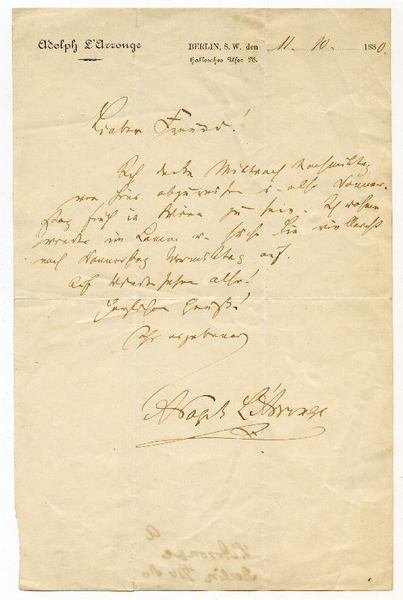 Adolph L'Arronge
BERLIN, S. W. den 11. 10. 1880.
Hallesches Ufer 28.
Lieber Freund!
Ich denke Mittwoch Nachmittag
von hier abzureisen u. also Donners-
tag früh in Wien zu sein. Ich wohne
wieder im Lamm u. suche Sie vielleicht
noch Donnerstag Vormittag auf.
Auf Wiedersehen also!
Herzlichen Gruß!
Ihr ergebener
Adolph L'Arronge